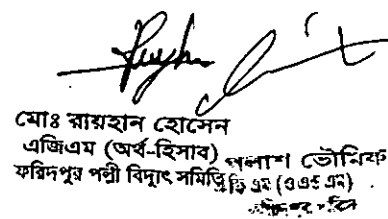 মোঃ রায়হান হোসেন
এজিএম (অর্থ-হিসাব)
ফরিদপুর পল্লী বিদ্যুৎ সমিতি
পলাশ ভৌমিক
ডি এম (ওএন্ড এম)